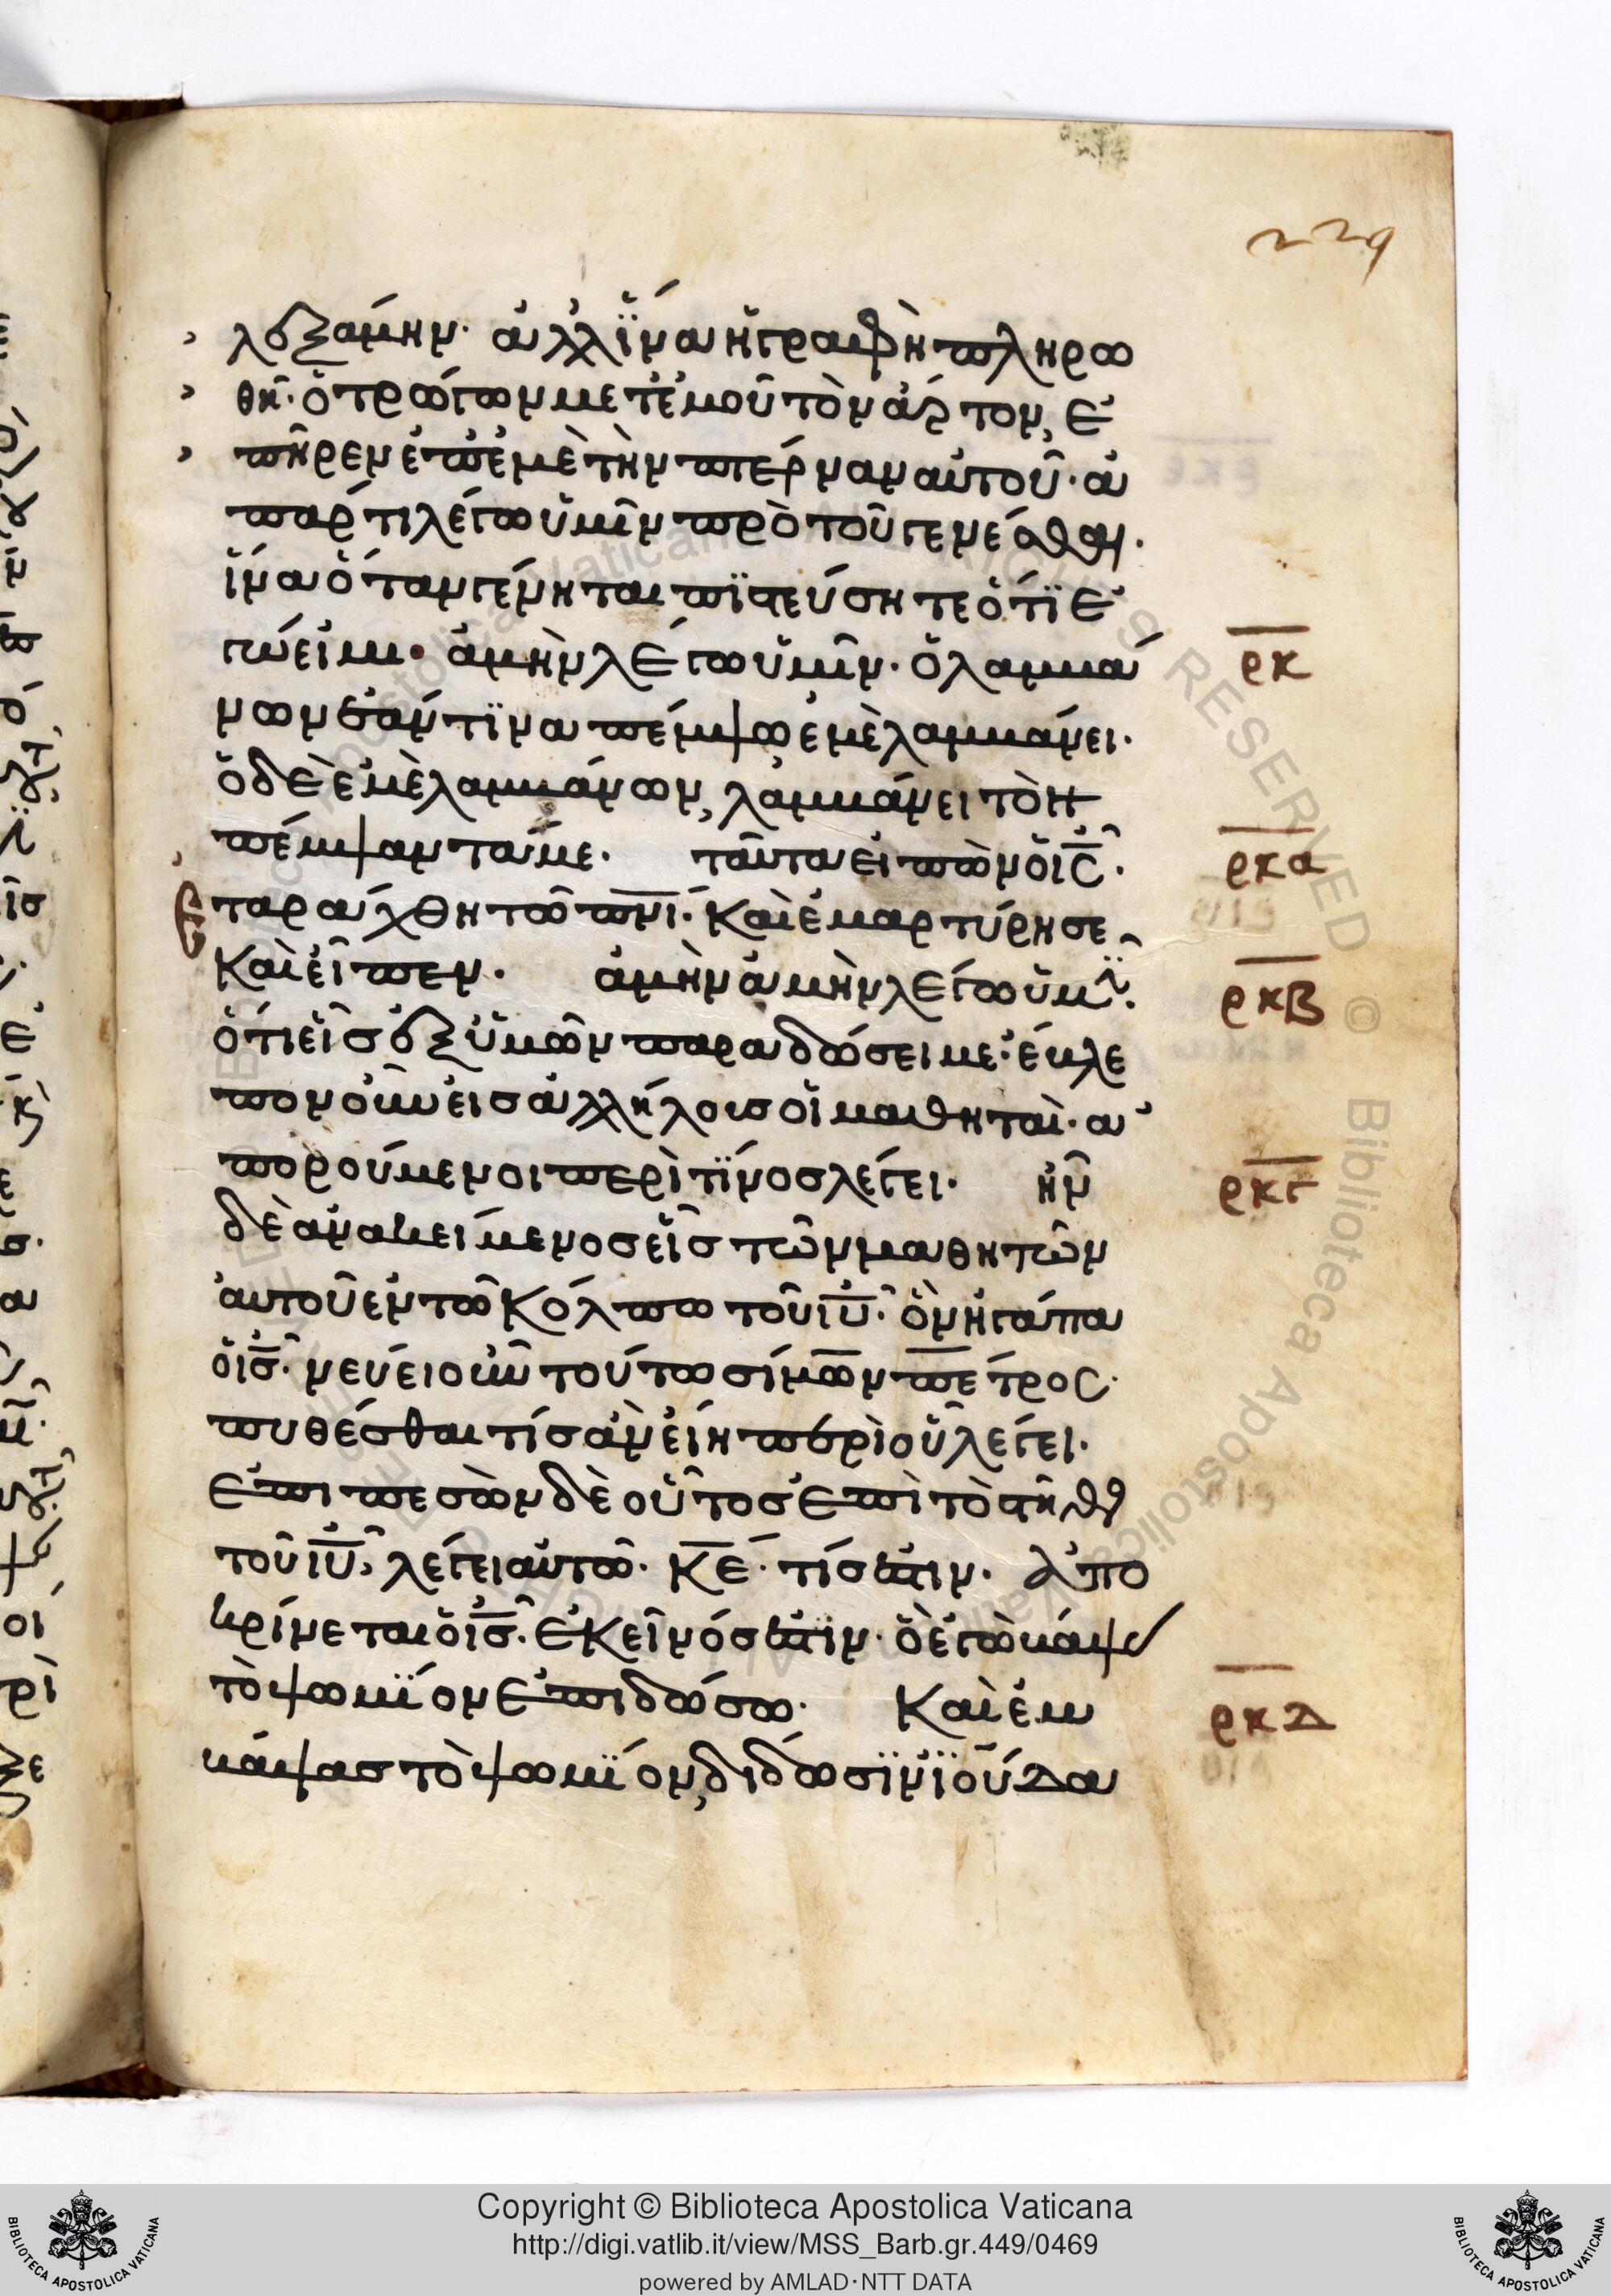 229
λεξάμην· ἀλλ ΐνα ἡ γραφὴ πληρω
θῆ· ὁ τρώγων μετ ἐμοῦ τὸν ἄρτον, ἐ
πῆρεν ἐπ ἐμὲ τὴν πτέρναν αὐτοῦ· ἀ
παρτι λέγω ὑμῖν πρὸ τοῦ γενέσθαι·
ἵνα ὅταν γένηται πϊστεύσητε ὅτϊ ἐ
γώ εἰμι· ἀμὴν λέγω ὑμῖν· ὁ λαμβά
νων ἐάν τϊνα πέμψω ἐμὲ λαμβάνει·
ὁ δὲ ἐμὲ λαμβάνων, λαμβάνει τὸν
πέμψαντά με· ταῦτα εἰπὼν ὁ ις·
ταράχθη τῶ πνι· Καὶ ἐμαρτύρησε
Καὶ εἶπεν· ἀμὴν ἀμὴν λέγω ὑμῖν·
ὅτι εἷσ ἐξ ὑμῶν παραδώσει με· ἔβλε
πον οὖν εισ ἀλλήλουσ οἱ μαθηταὶ· ἀ
πορούμενοι περὶ τΐνοσ λέγει· ἦν
δὲ ἀνακείμενοσ εἷσ τῶν μαθητῶν
αὐτοῦ ἐν τῶ Κόλπω τοῦ ιυ· ὃν ἠγάπα
ὁ ισ· νεύει οὖν τούτω σίμων πέτρος·
πυθέσθαι τίσ ἂν εἴη περὶ οὗ λέγει·
Ἐπιπεσὼν δὲ οὗτοσ ἐπὶ τὸ στῆθος
τοῦ ιυ, λέγει αὐτῶ· Κε· τίσ ἐστιν· Ἀπο
κρίνεται ὁ ισ· ἐΚεῖνόσ ἐστϊν· ὧ ἐγὼ βάψας
τὸ ψωμΐον ἐπιδώσω· Καὶ ἐμ
βάψασ τὸ ψωμΐον, δίδωσϊν ϊούδα
ρκ
ρκα
ρκβ
ρκγ
ρκδ
Copyright © Biblioteca Apostolica Vaticana
http://digi.vatlib.it/view/MSS_Barb.gr.449/0469
powered by AMLAD·NTT DATA
BIBLIOTECA APOSTOLICA VATICANA
BIBLIOTECA APOSTOLICA VATICANA